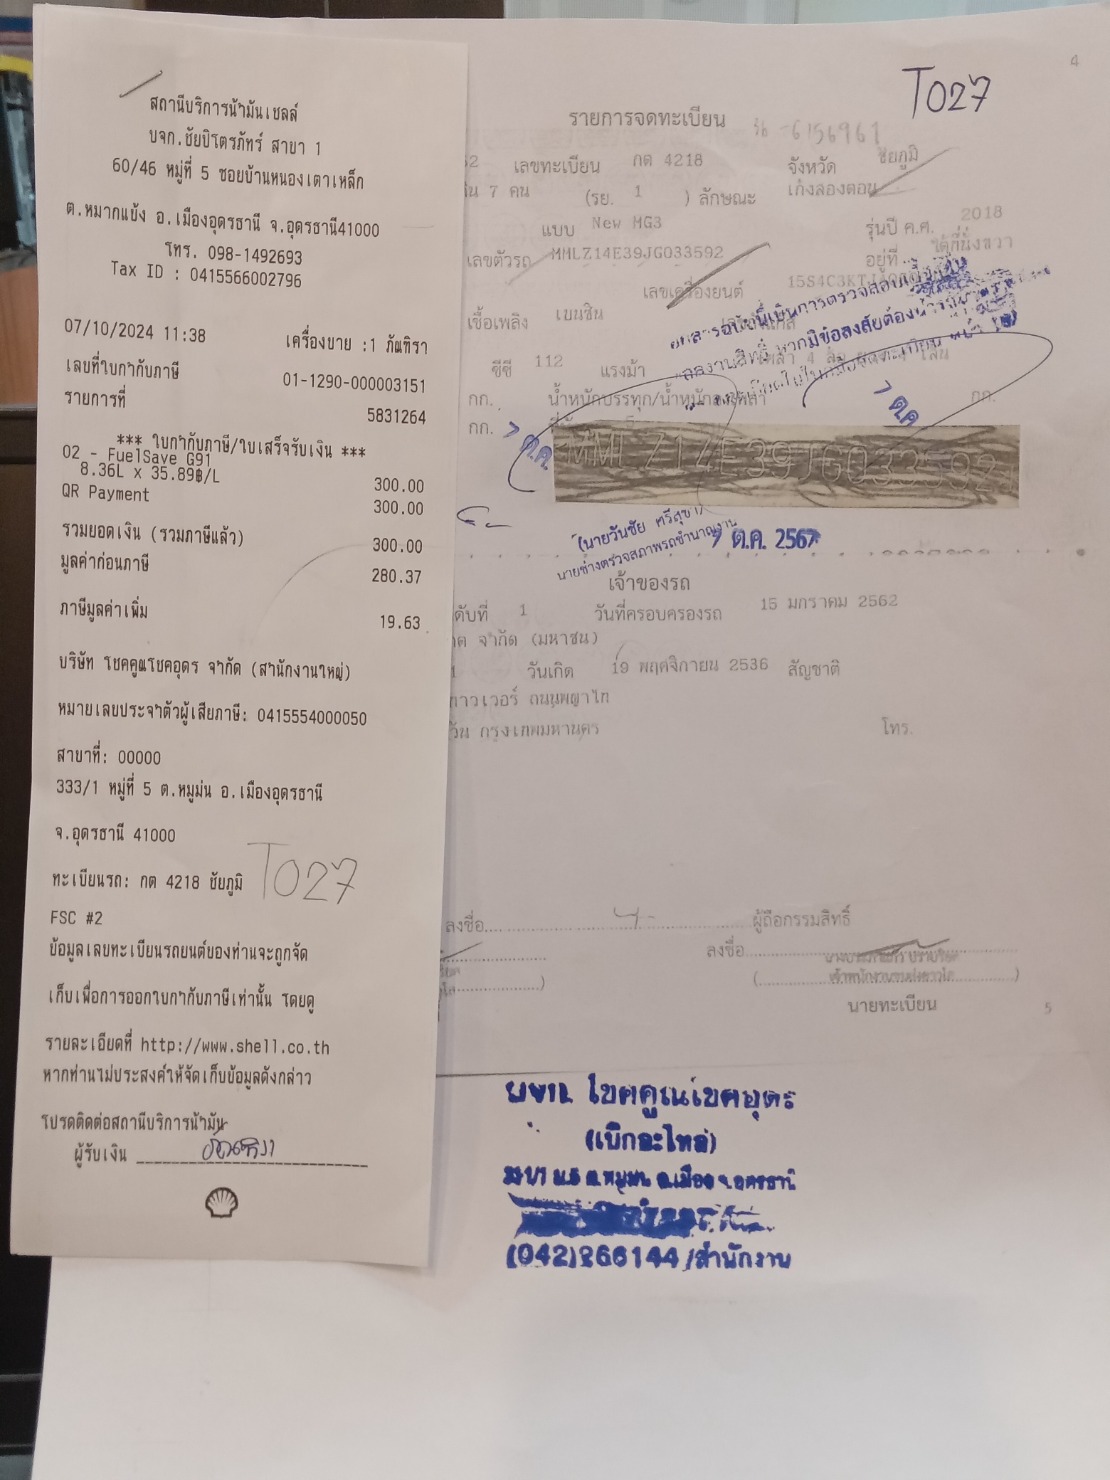 สถานีบริการน้ำมันเชลล์
บจก.ชัยปิโตรภัทร์ สาขา 1
60/46 หมู่ที่ 5 ซอยบ้านหนองเตาเหล็ก
ต.หมากแข้ง อ.เมืองอุดรธานี จ.อุดรธานี41000
โทร. 098-1492693
Tax ID : 0415566002796
07/10/2024 11:38 เครื่องขาย :1 ภัณฑิรา
เลขที่ใบกำกับภาษี 01-1290-000003151
รายการที่ 5831264
*** ใบกำกับภาษี/ใบเสร็จรับเงิน ***
02 - FuelSave G91
8.36L x 35.89฿/L 300.00
QR Payment 300.00
รวมยอดเงิน (รวมภาษีแล้ว) 300.00
มูลค่าก่อนภาษี 280.37
ภาษีมูลค่าเพิ่ม 19.63
บริษัท โชคคูณโชคอุดร จำกัด (สำนักงานใหญ่)
หมายเลขประจำตัวผู้เสียภาษี: 0415554000050
สาขาที่: 00000
333/1 หมู่ที่ 5 ต.หมูม่น อ.เมืองอุดรธานี
จ.อุดรธานี 41000
ทะเบียนรถ: กต 4218 ชัยภูมิ T027
FSC #2
ข้อมูลเลขทะเบียนรถยนต์ของท่านจะถูกจัด
เก็บเพื่อการออกใบกำกับภาษีเท่านั้น โดยดู
รายละเอียดที่ http://www.shell.co.th
หากท่านไม่ประสงค์ให้จัดเก็บข้อมูลดังกล่าว
โปรดติดต่อสถานีบริการน้ำมัน
ผู้รับเงิน
4
T027
รายการจดทะเบียน
เลขทะเบียน กต 4218 จังหวัด ชัยภูมิ
7 คน (รย. 1 ) ลักษณะ เก๋งสองตอน
แบบ New MG3 รุ่นปี ค.ศ. 2018
เลขตัวรถ MMLZ14E39JG033592 อยู่ที่
เลขเครื่องยนต์
เชื้อเพลิง เบนซิน
ซีซี 112 แรงม้า
กก. น้ำหนักบรรทุก/น้ำหนัก กก.
กก.
7 ต.ค.
7 ต.ค.
MMLZ14E39JG033592
(นายวันชัย ศรีสุขา)
นายช่างตรวจสภาพรถชำนาญงาน
7 ต.ค. 2567
เจ้าของรถ
ดับที่ 1 วันที่ครอบครองรถ 15 มกราคม 2562
จำกัด (มหาชน)
วันเกิด 19 พฤศจิกายน 2536 สัญชาติ
ทาวเวอร์ ถนนพญาไท
กรุงเทพมหานคร โทร.
ลงชื่อ ผู้ถือกรรมสิทธิ์
ลงชื่อ
นายทะเบียน
5
บจก. โชคคูณโชคอุดร
(เบิกอะไหล่)
333/1 ม.5 ต.หมูม่น อ.เมือง จ.อุดรธานี
(042)266144/สำนักงาน